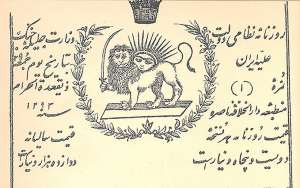 روزنامه نظامی دولت
علیه ایران
نمره
(۱)
منطبعه دارالخلافه ناصره
قیمت روزنامه هر نسخه
دویست و پنجاه دینار است
وزارت جلیله جنگ
بتاریخ یوم
ذیقعدة الحرام
سنه ۱۲۹۳
قیمت سالیانه
دوازده هزار دینار است